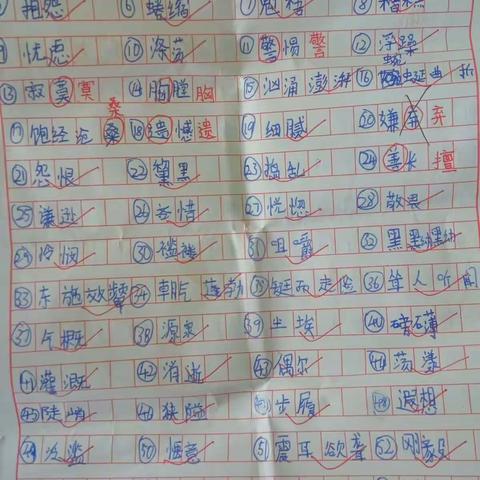 抱怨 ⑥ 蜷缩
忧虑 ⑩ 涤荡 ⑪ 警惕 警 ⑫ 浮躁
⑬ 寂寞 寞 ⑭ 胸膛 胸 ⑮ 汹涌澎湃 ⑯ 蜿蜒曲折
⑰ 饱经沧桑 桑 ⑱ 遗憾 遗 ⑲ 细腻 ⑳ 嫌弃 弃
㉑ 怨恨 ㉒ 黑 ㉓ 捣乱 ㉔ 擅长 擅
㉕ ㉖ 吝惜 ㉗ 恍惚 ㉘ 敬畏
㉙ ㉚ 褴褛 ㉛ 咀嚼 ㉜
㉝ 东施效颦 ㉞ 朝气蓬勃 ㉟ 铤而走险 ㊱ 耸人听闻
㊲ 气概 ㊳ 源泉 ㊴ 尘埃 ㊵ 磅礴
㊶ 灌溉 ㊷ 消逝 ㊸ 偶尔 ㊹ 荡漾
㊺ 陡峭 狭隘 步履 ㊽ 遐想
㊾ 泛滥 ㊿ 惬意 51 震耳欲聋 52 刚毅